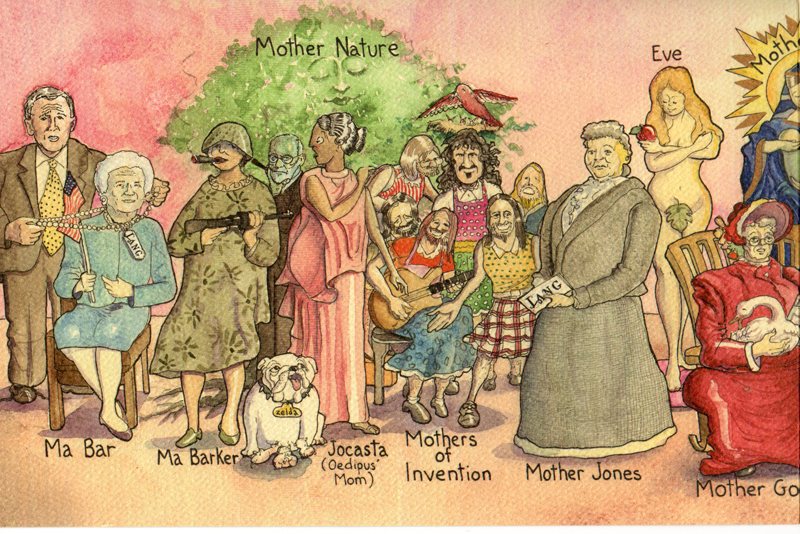 Mother Nature
Eve
Moth
LANG
LANG
zelda
Ma Bar
Ma Barker
Jocasta
(Oedipus'
Mom)
Mothers
of
Invention
Mother Jones
Mother Go